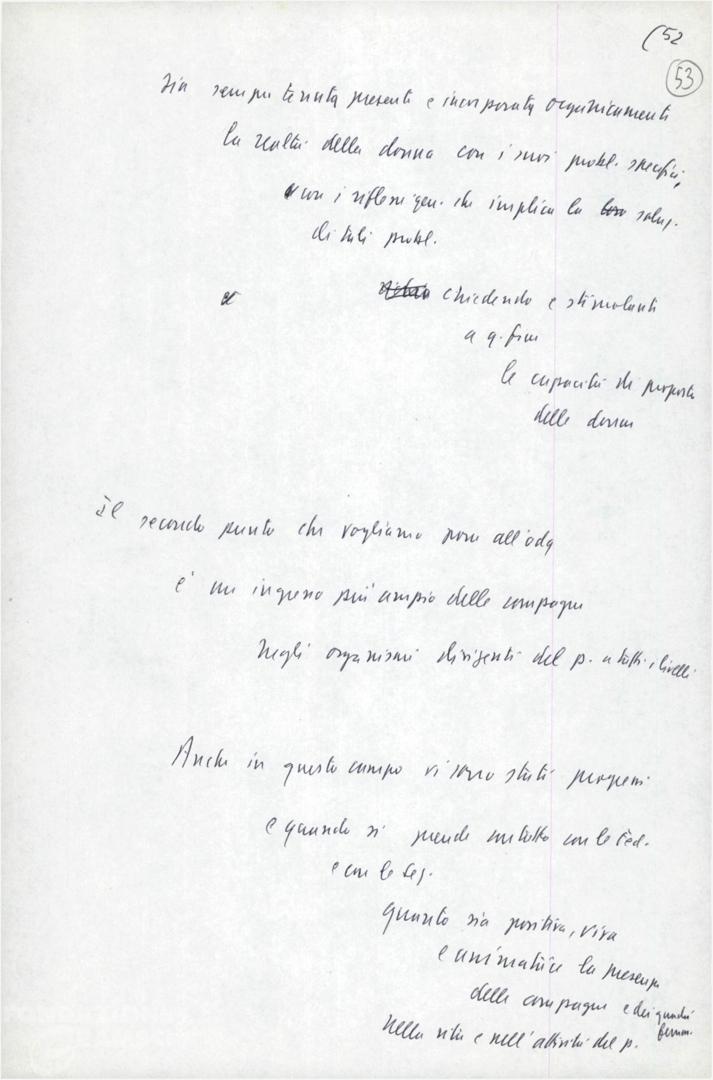 (52
53
sia sempre tenuta presente e incorporata organicamente
la realtà della donna con i suoi probl. specifici,
e con i riflessi gen. che implica la soluz.
di tali probl.
e chiedendo e stimolando
a q. fine
le capacità di proposta
delle donne
il secondo punto che vogliamo porre all'odg
è un ingresso più ampio delle compagne
negli organismi dirigenti del p. a tutti i livelli
Anche in questo campo vi sono stati progressi
e quando si prende contatto con le Fed.
e con le sez.
quanto sia positiva, viva
e animatrice la presenza
delle compagne e dei quadri
femm.
nella vita e nell'attività del p.